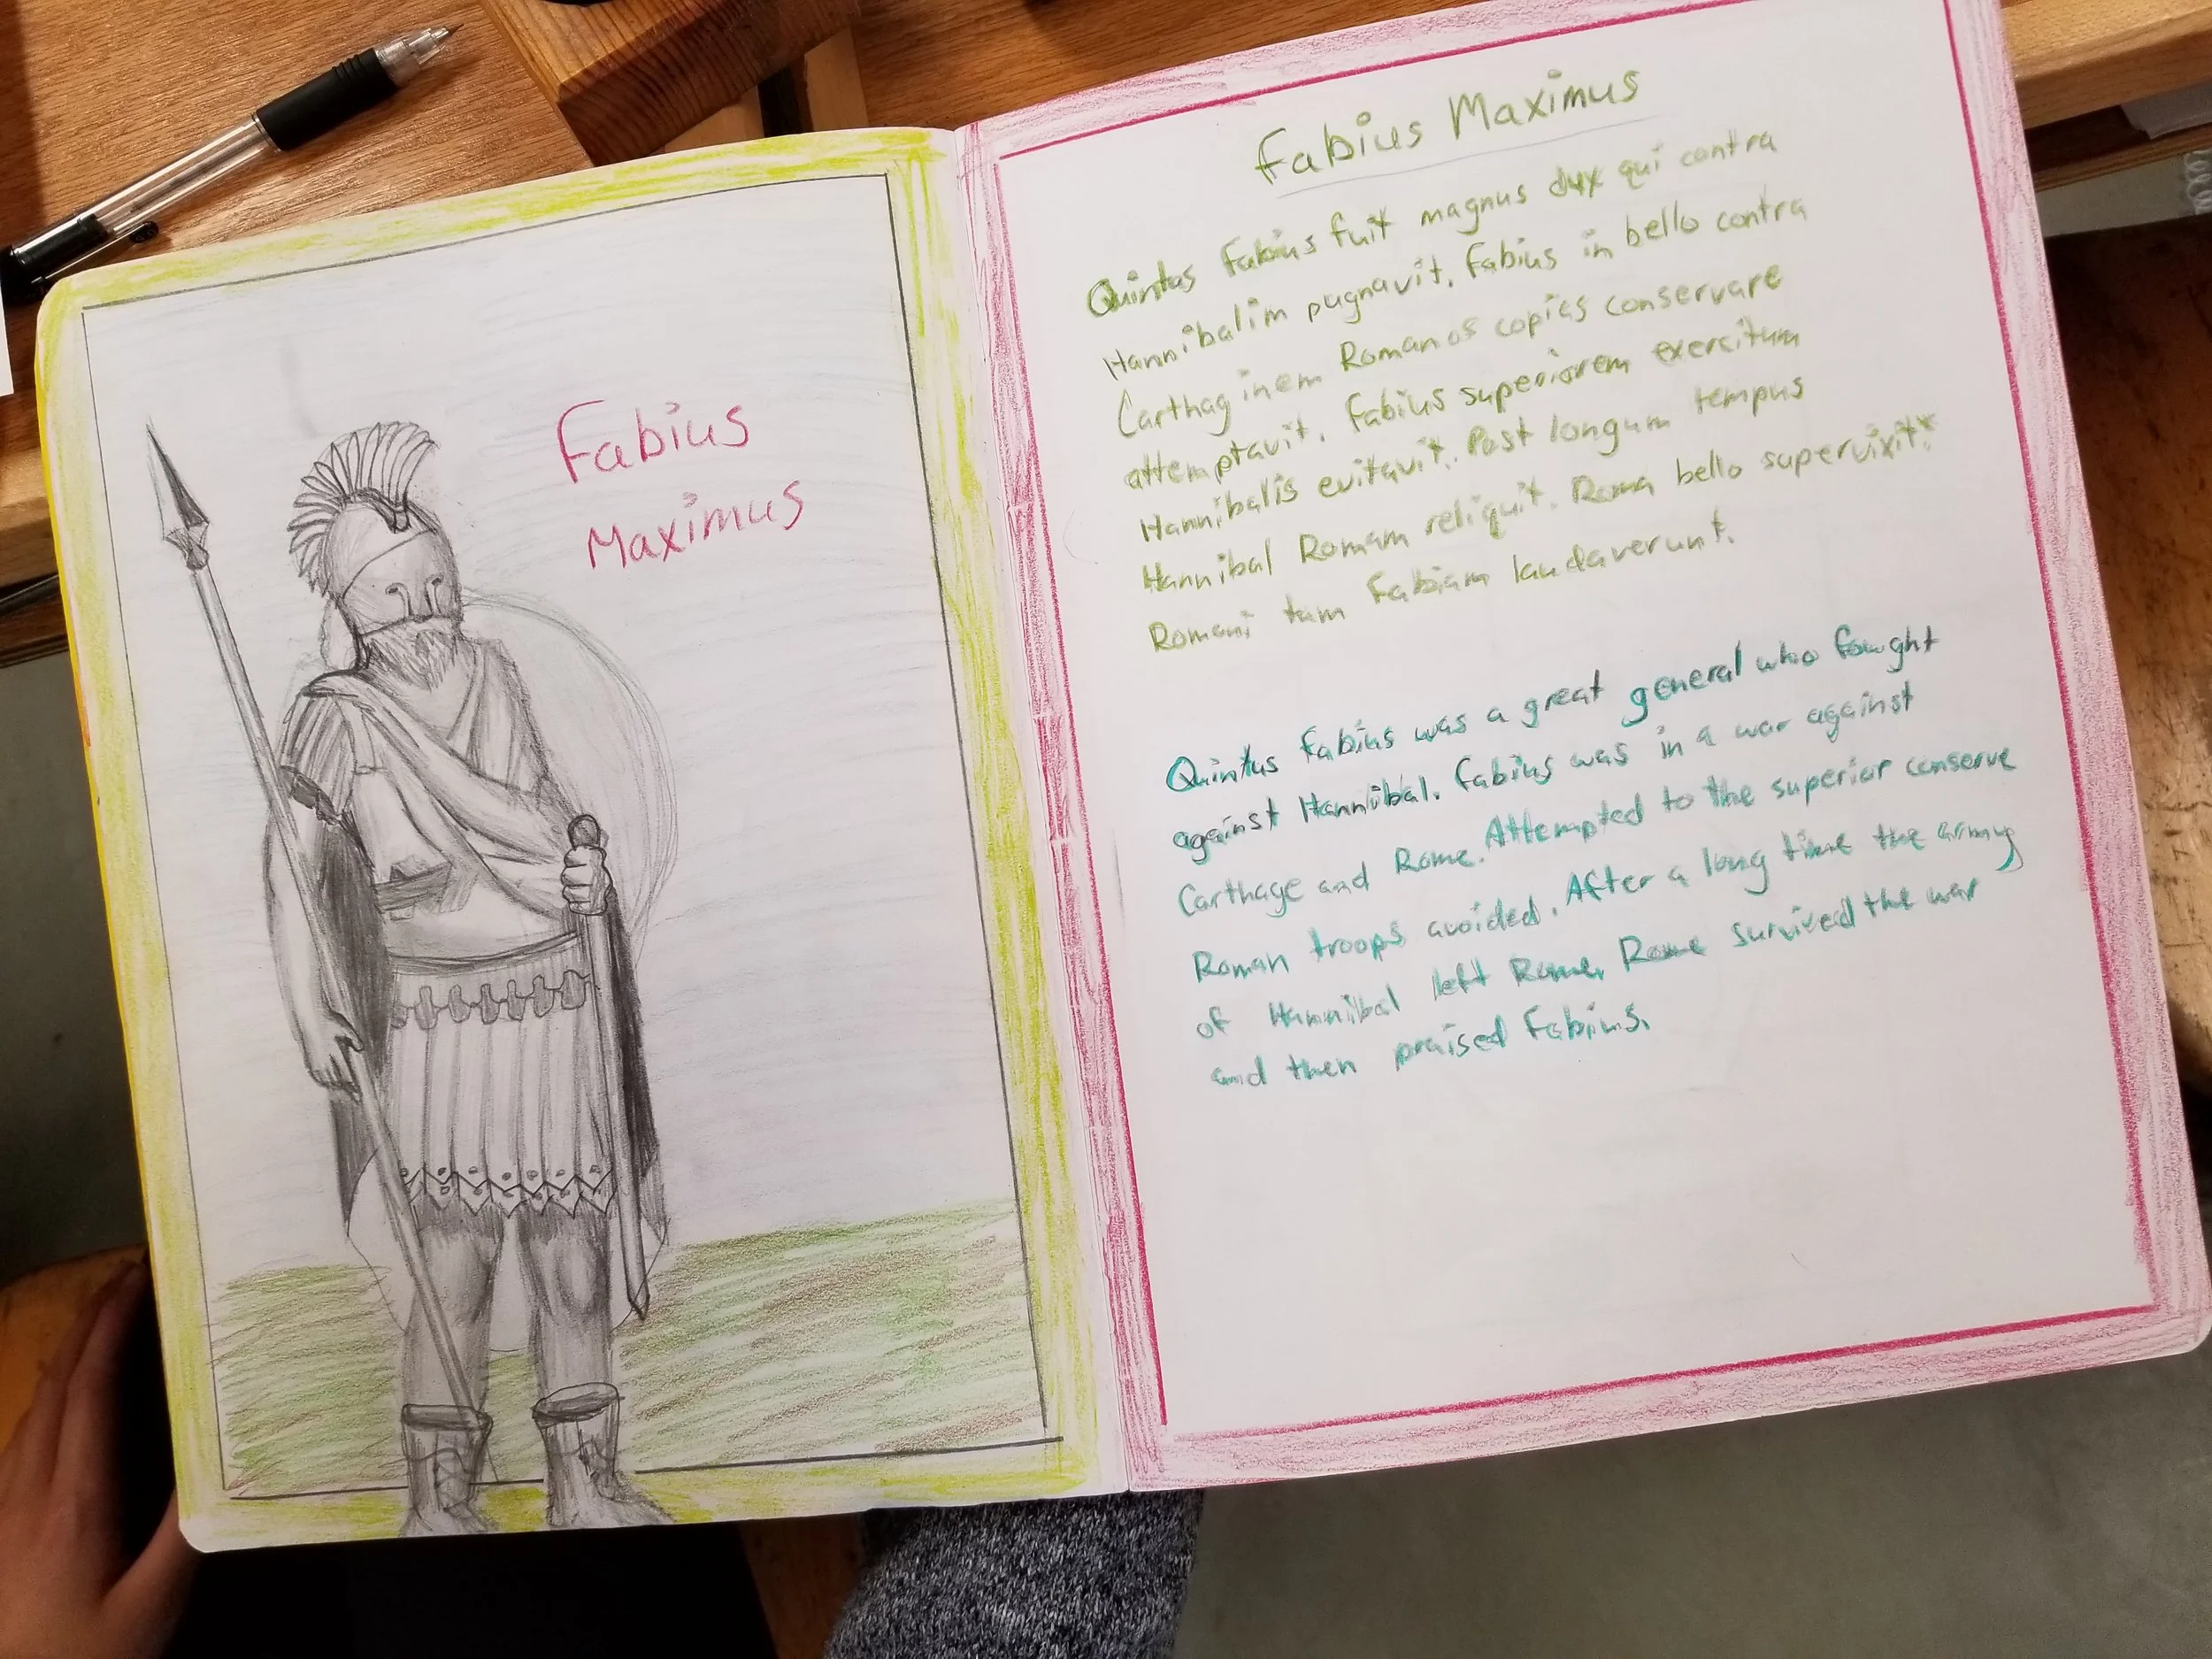 Fabius
Maximus
Fabius Maximus
Quintus Fabius fuit magnus dux qui contra
Hannibalim pugnavit. Fabius in bello contra
Carthaginem Romanos copias conservare
attemptavit. Fabius superiorem exercitum
Hannibalis evitavit. Post longum tempus
Hannibal Romam reliquit. Roma bello supervixit.
Romani tum Fabium laudaverunt.
Quintus Fabius was a great general who fought
against Hannibal. Fabius was in a war against
Carthage and Rome. Attempted to the superior conserve
Roman troops avoided. After a long time the army
of Hannibal left Rome. Rome survived the war
and then praised Fabius.